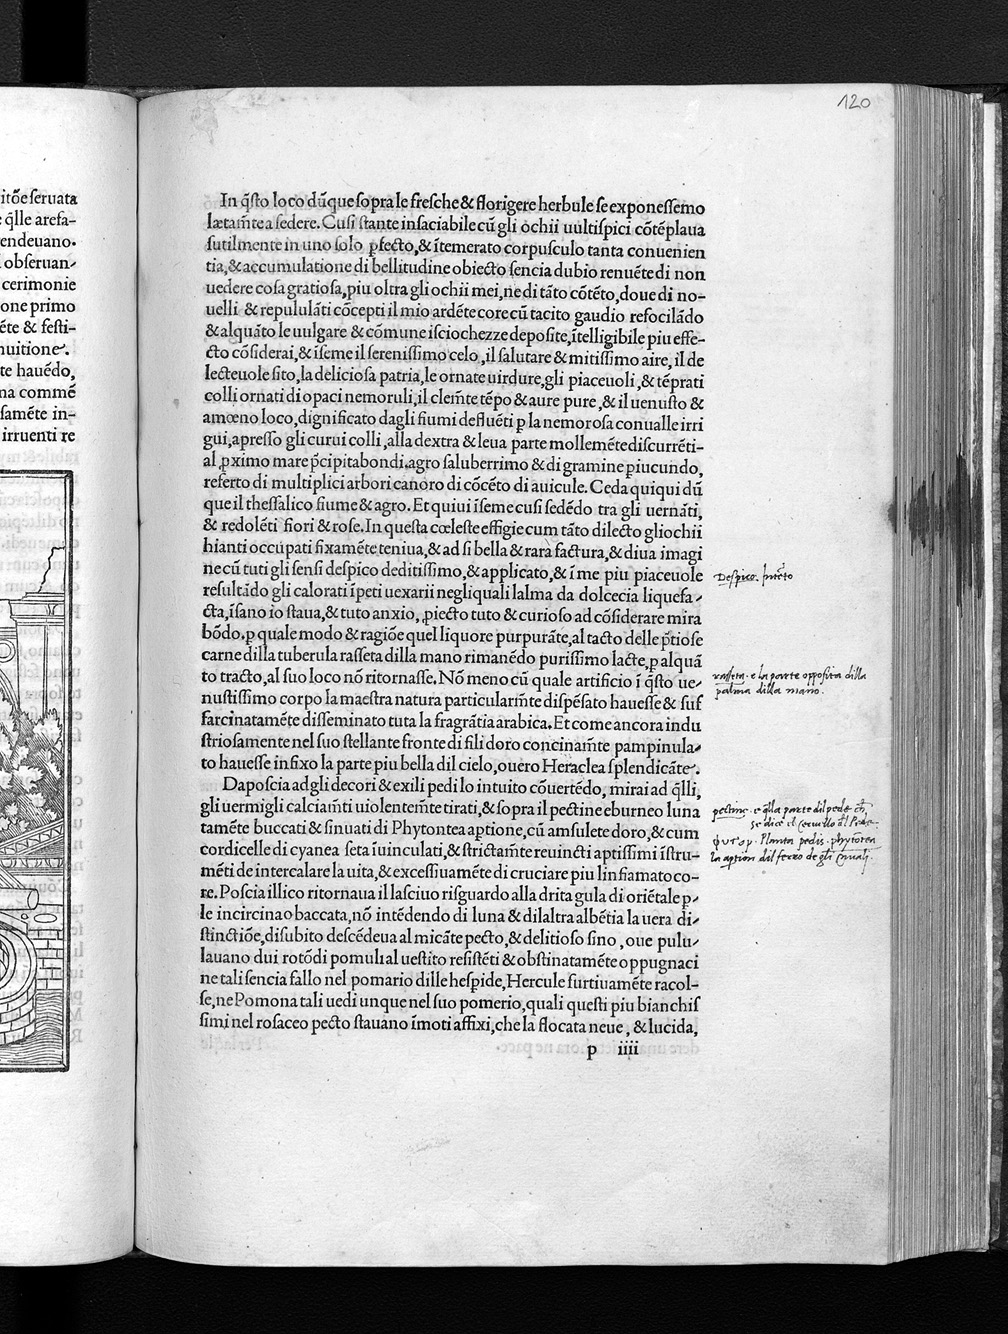 itõe seruata
q̃lle arefa-
endeuano.
obseruan-
cerimonie
one primo
ẽte & festi-
nuitione.
te hauẽdo,
na commẽ
samẽte in-
irruenti re
120
In q̃sto loco dũque sopra le fresche & florigere herbule se exponessemo
lætam̃te a sedere. Cusi stante insaciabile cũ gli ochii uultispici cõtẽplaua
sutilmente in uno solo ꝑfecto, & ĩtemerato corpusculo tanta conuenien
tia, & accumulatione di bellitudine obiecto sencia dubio renuẽte di non
uedere cosa gratiosa, piu oltra gli ochii mei, ne di tãto cõtẽto, doue di no-
uelli & repululãti cõcepti il mio ardẽte core cũ tacito gaudio refocilãdo
& alquãto le uulgare & cõmune isciochezze deposite, ĩtelligibile piu effe-
cto cõsiderai, & ĩseme il serenissimo celo, il salutare & mitissimo aire, il de
lecteuole sito, la deliciosa patria, le ornate uirdure, gli piaceuoli, & tẽprati
colli ornati di opaci nemoruli, il clem̃te tẽpo & aure pure, & il uenusto &
amœno loco, dignificato dagli fiumi defluẽti ꝑ la nemorosa conualle irri
gui, apresso gli curui colli, alla dextra & leua parte mollemẽte discurrẽti-
al ꝓximo mare p̃cipitabondi. agro saluberrimo & di gramine piucundo,
referto di multiplici arbori canoro di cõcẽto di auicule. Ceda quiqui dũ
que il thessalico fiume & agro. Et quiui ĩseme cusi sedẽdo tra gli uernãti,
& redolẽti fiori & rose. In questa cœleste effigie cum tãto dilecto gli ochii
hianti occupati fixamẽte teniua, & ad si bella & rara factura, & diua imagi
ne cũ tuti gli sensi despico deditissimo, & applicato, & ĩ me piu piaceuole
resultãdo gli calorati ĩpeti uexarii negli quali lalma da dolcecia liquefa-
cta, ĩsano io staua, & tuto anxio, ꝓiecto tuto & curioso ad cõsiderare mira
bõdo. ꝑ quale modo & ragiõe quel liquore purpurãte, al tacto delle p̃tiose
carne dilla tuberula rasseta dilla mano rimanẽdo purissimo lacte, ꝑ alquã
to tracto, al suo loco nõ ritornasse. Nõ meno cũ quale artificio ĩ q̃sto ue-
nustissimo corpo la maestra natura particularm̃te dispẽsato hauesse & suf
farcinatamẽte disseminato tuta la fragrãtia arabica. Et come ancora indu
striosamente nel suo stellante fronte di fili doro concinam̃te pampinula-
to hauesse infixo la parte piu bella dil cielo, ouero Heraclea splendicãte.
Daposcia ad gli decori & exili pedi lo intuito cõuertẽdo, mirai ad q̃lli,
gli uermigli calciam̃ti uiolentem̃te tirati, & sopra il pectine eburneo luna
tamẽte buccati & sinuati di Phytontea aptione, cũ amsulete doro, & cum
cordicelle di cyanea seta ĩuinculati, & strictam̃te reuincti aptissimi ĩstru-
mẽti de intercalare la uita, & excessiuamẽte di cruciare piu linfiamato co-
re. Poscia illico ritornaua il lasciuo risguardo alla drita gula di oriẽtale p-
le incircinao baccata, nõ intẽdendo di luna & dilaltra albẽtia la uera di-
stinctiõe, disubito descẽdeua al micãte pecto, & delitioso sino, oue pulu-
lauano dui rotõdi pomuli al uestito resistẽti & obstinatamẽte oppugnaci
ne tali sencia fallo nel pomario dille hespide, Hercule furtiuamẽte racol-
se, ne Pomona tali uedi unque nel suo pomerio, quali questi piu bianchis
simi nel rosaceo pecto stauano ĩmoti affixi, che la flocata neue, & lucida,
p iiii
Despico.
rasseta. e la parte opposita dilla
palma dilla mano.
pectine. e q̃lla parte dil pede
se dice el
Planta pedis. phytontea
la aption dil ferro de gli